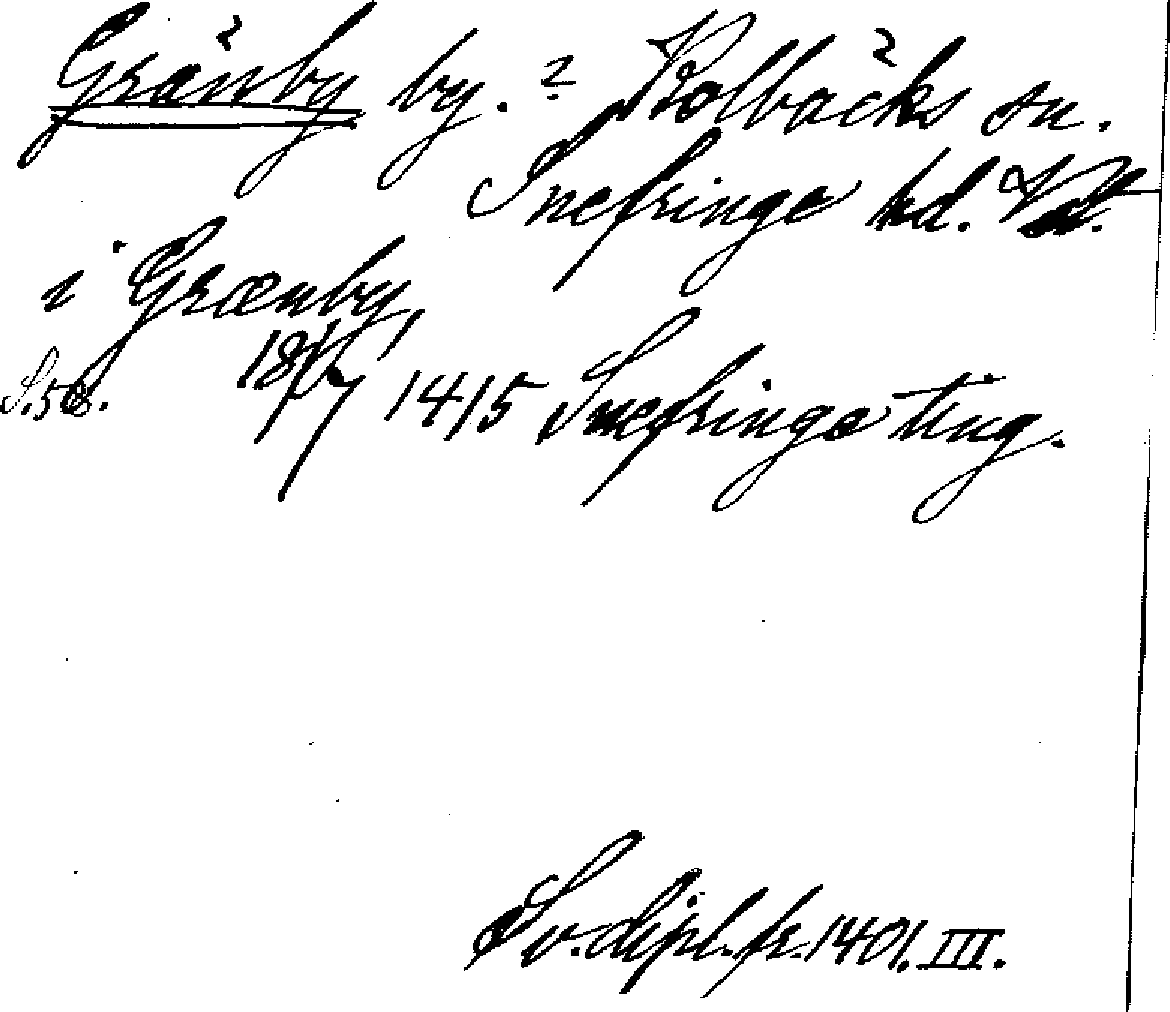 Gränby by. ? Kolbäcks sn.
Snefringe hd.
i Grænby,
S.56. 18/7 1415 Snefringe ting.
Sv. dipl. fr. 1401. III.